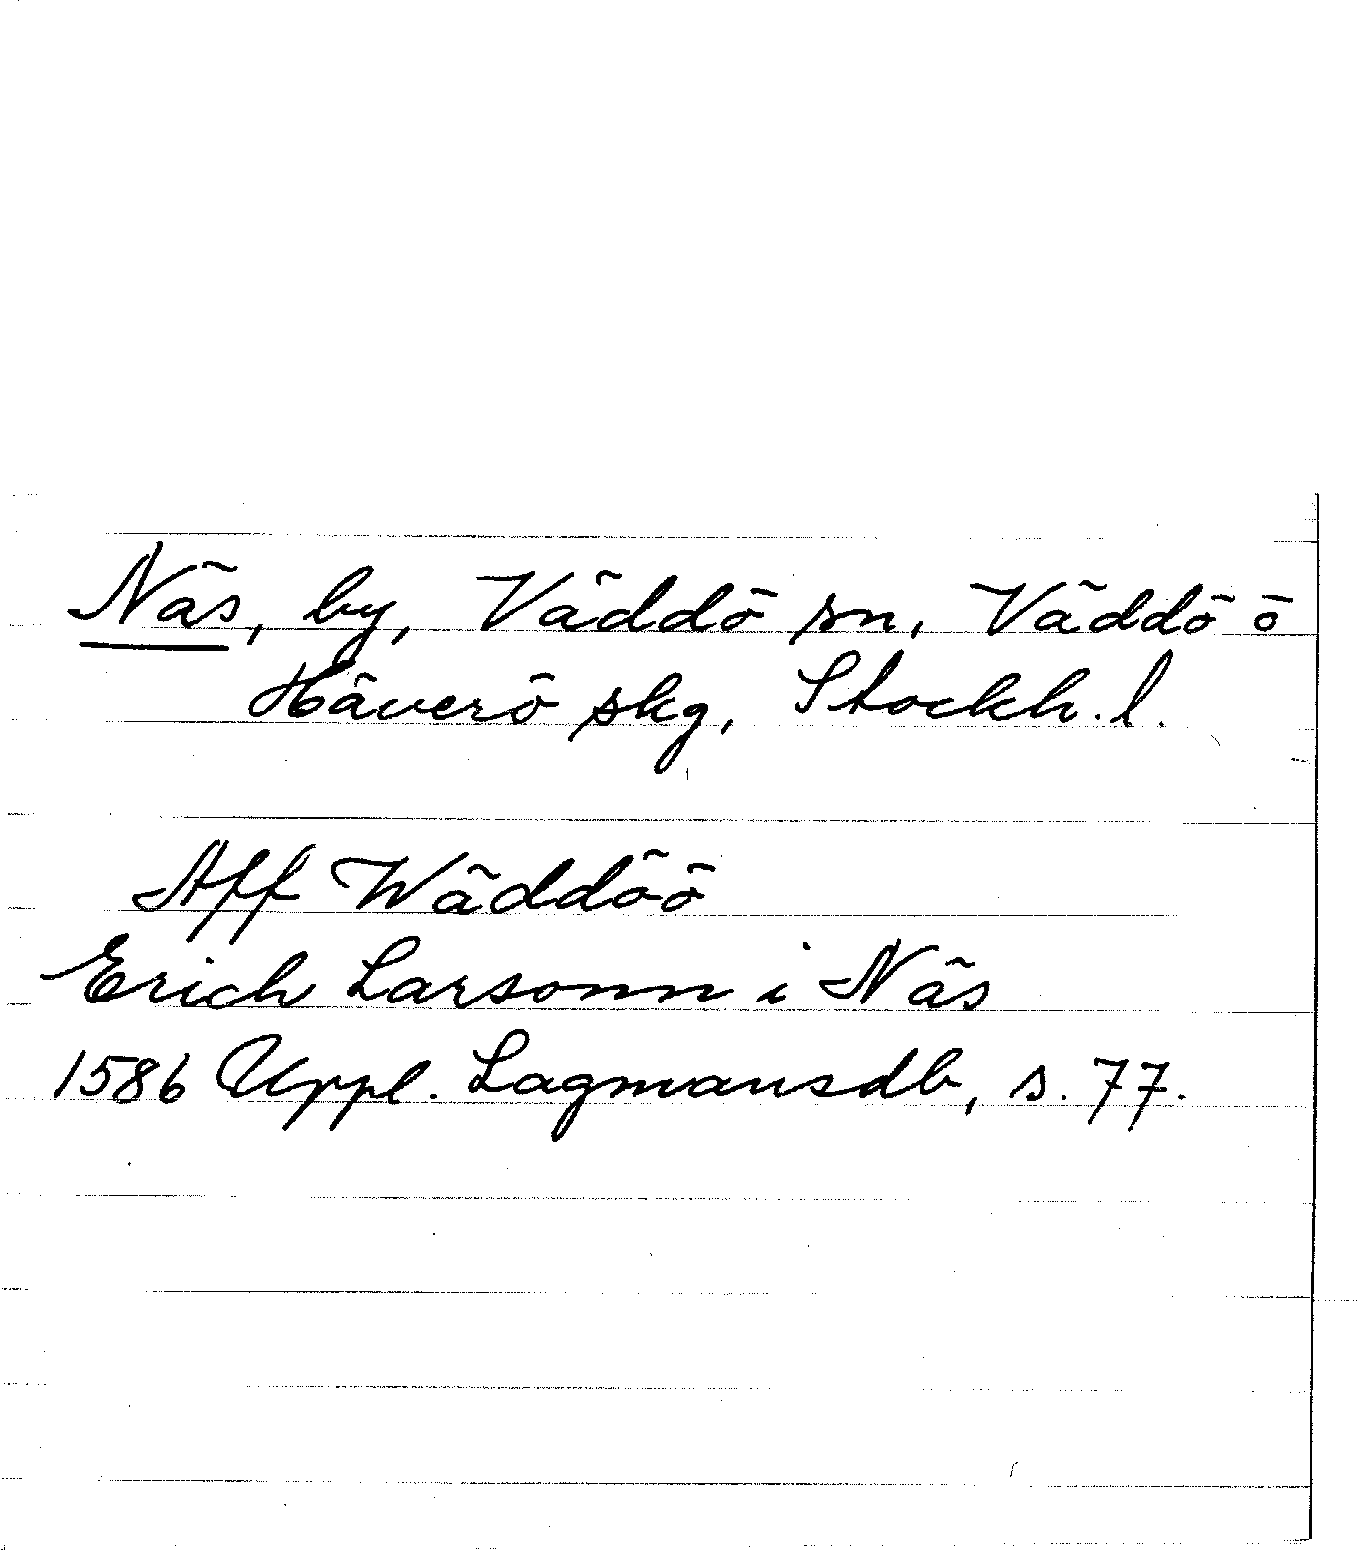 Näs, by, Väddö sn, Väddö ö
Häverö skg, Stockh. l.
Aff Wäddöö
Erich Larsonn i Näs
1586 Uppl. Lagmansdb, s. 77.